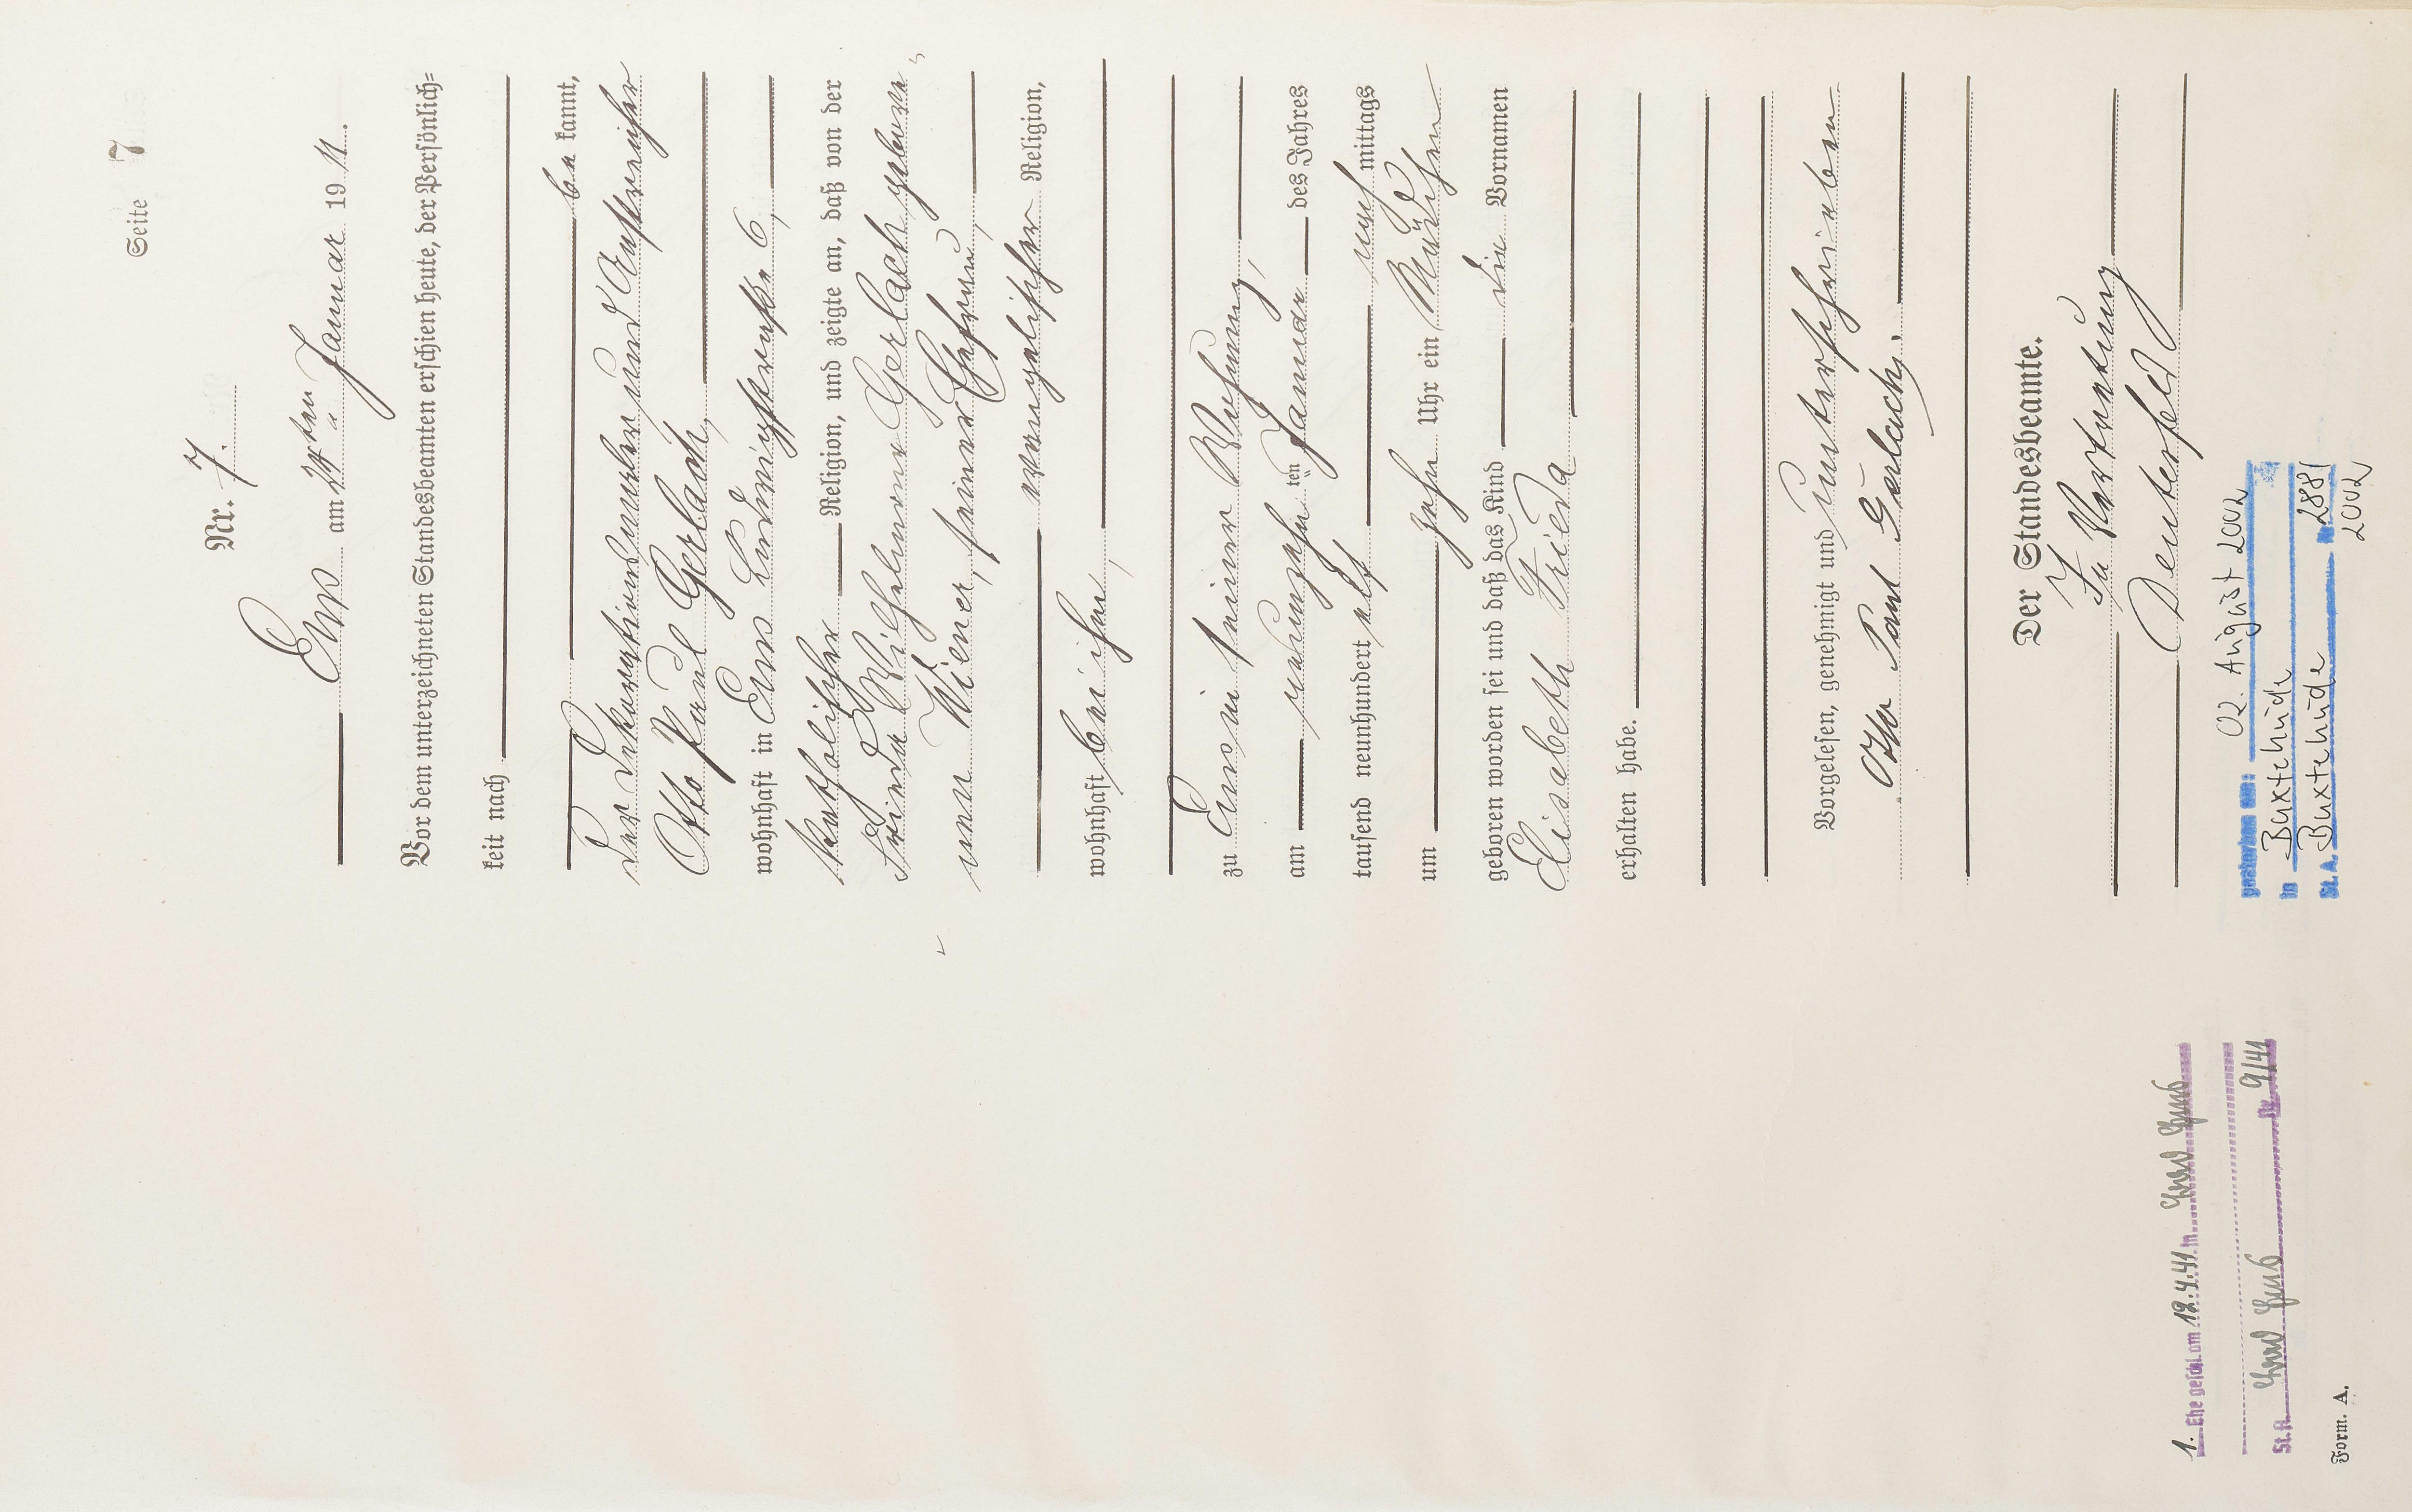 Seite 7
Nr. 7.
Ems am 24ten Januar 1911.
Vor dem unterzeichneten Standesbeamten erschien heute, der Persönlich=
keit nach
be kannt,
der Dekorationsmaler und Anstreicher
Otto Paul Gerlach,
wohnhaft in Ems Ludwigstraße 6,
katholischer Religion, und zeigte an, daß von der
Frieda Wilhelmine Gerlach gebore=
nen Wiener, seiner Ehefrau,
evangelischer Religion,
wohnhaft bei ihm,
zu Ems in seiner Wohnung,
am neunzehn ten Januar des Jahres
tausend neunhundert elf nach mittags
um zehn Uhr ein Mädchen
geboren worden sei und daß das Kind die Vornamen
Elisabeth Frieda
erhalten habe.
Vorgelesen, genehmigt und unterschrieben
Otto Paul Gerlach.
Der Standesbeamte.
In Vertretung
gestorben am: 02. August 2002
in Buxtehude
St. A. Buxtehude Nr. 288/
2002
1. Ehe geschl. am 12.4.41 in Bad Ems
St. A. Bad Ems Nr. 9/41
Form. A.